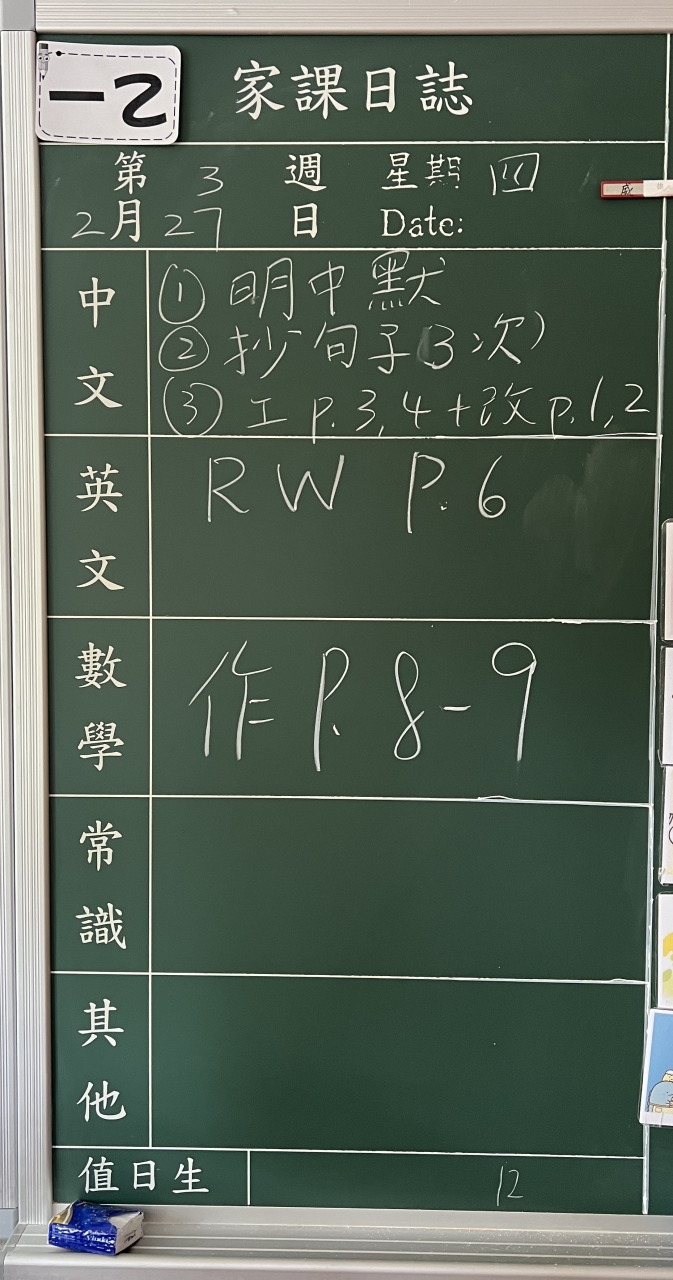 家課日誌
第 3 週 星期 四
2月 27 日 Date:
中文
① 明中默
② 抄句子(3次)
③ 工 p.3,4+改 p.1,2
英文
RW P.6
數學
作 P. 8-9
常識
其他
值日生 12